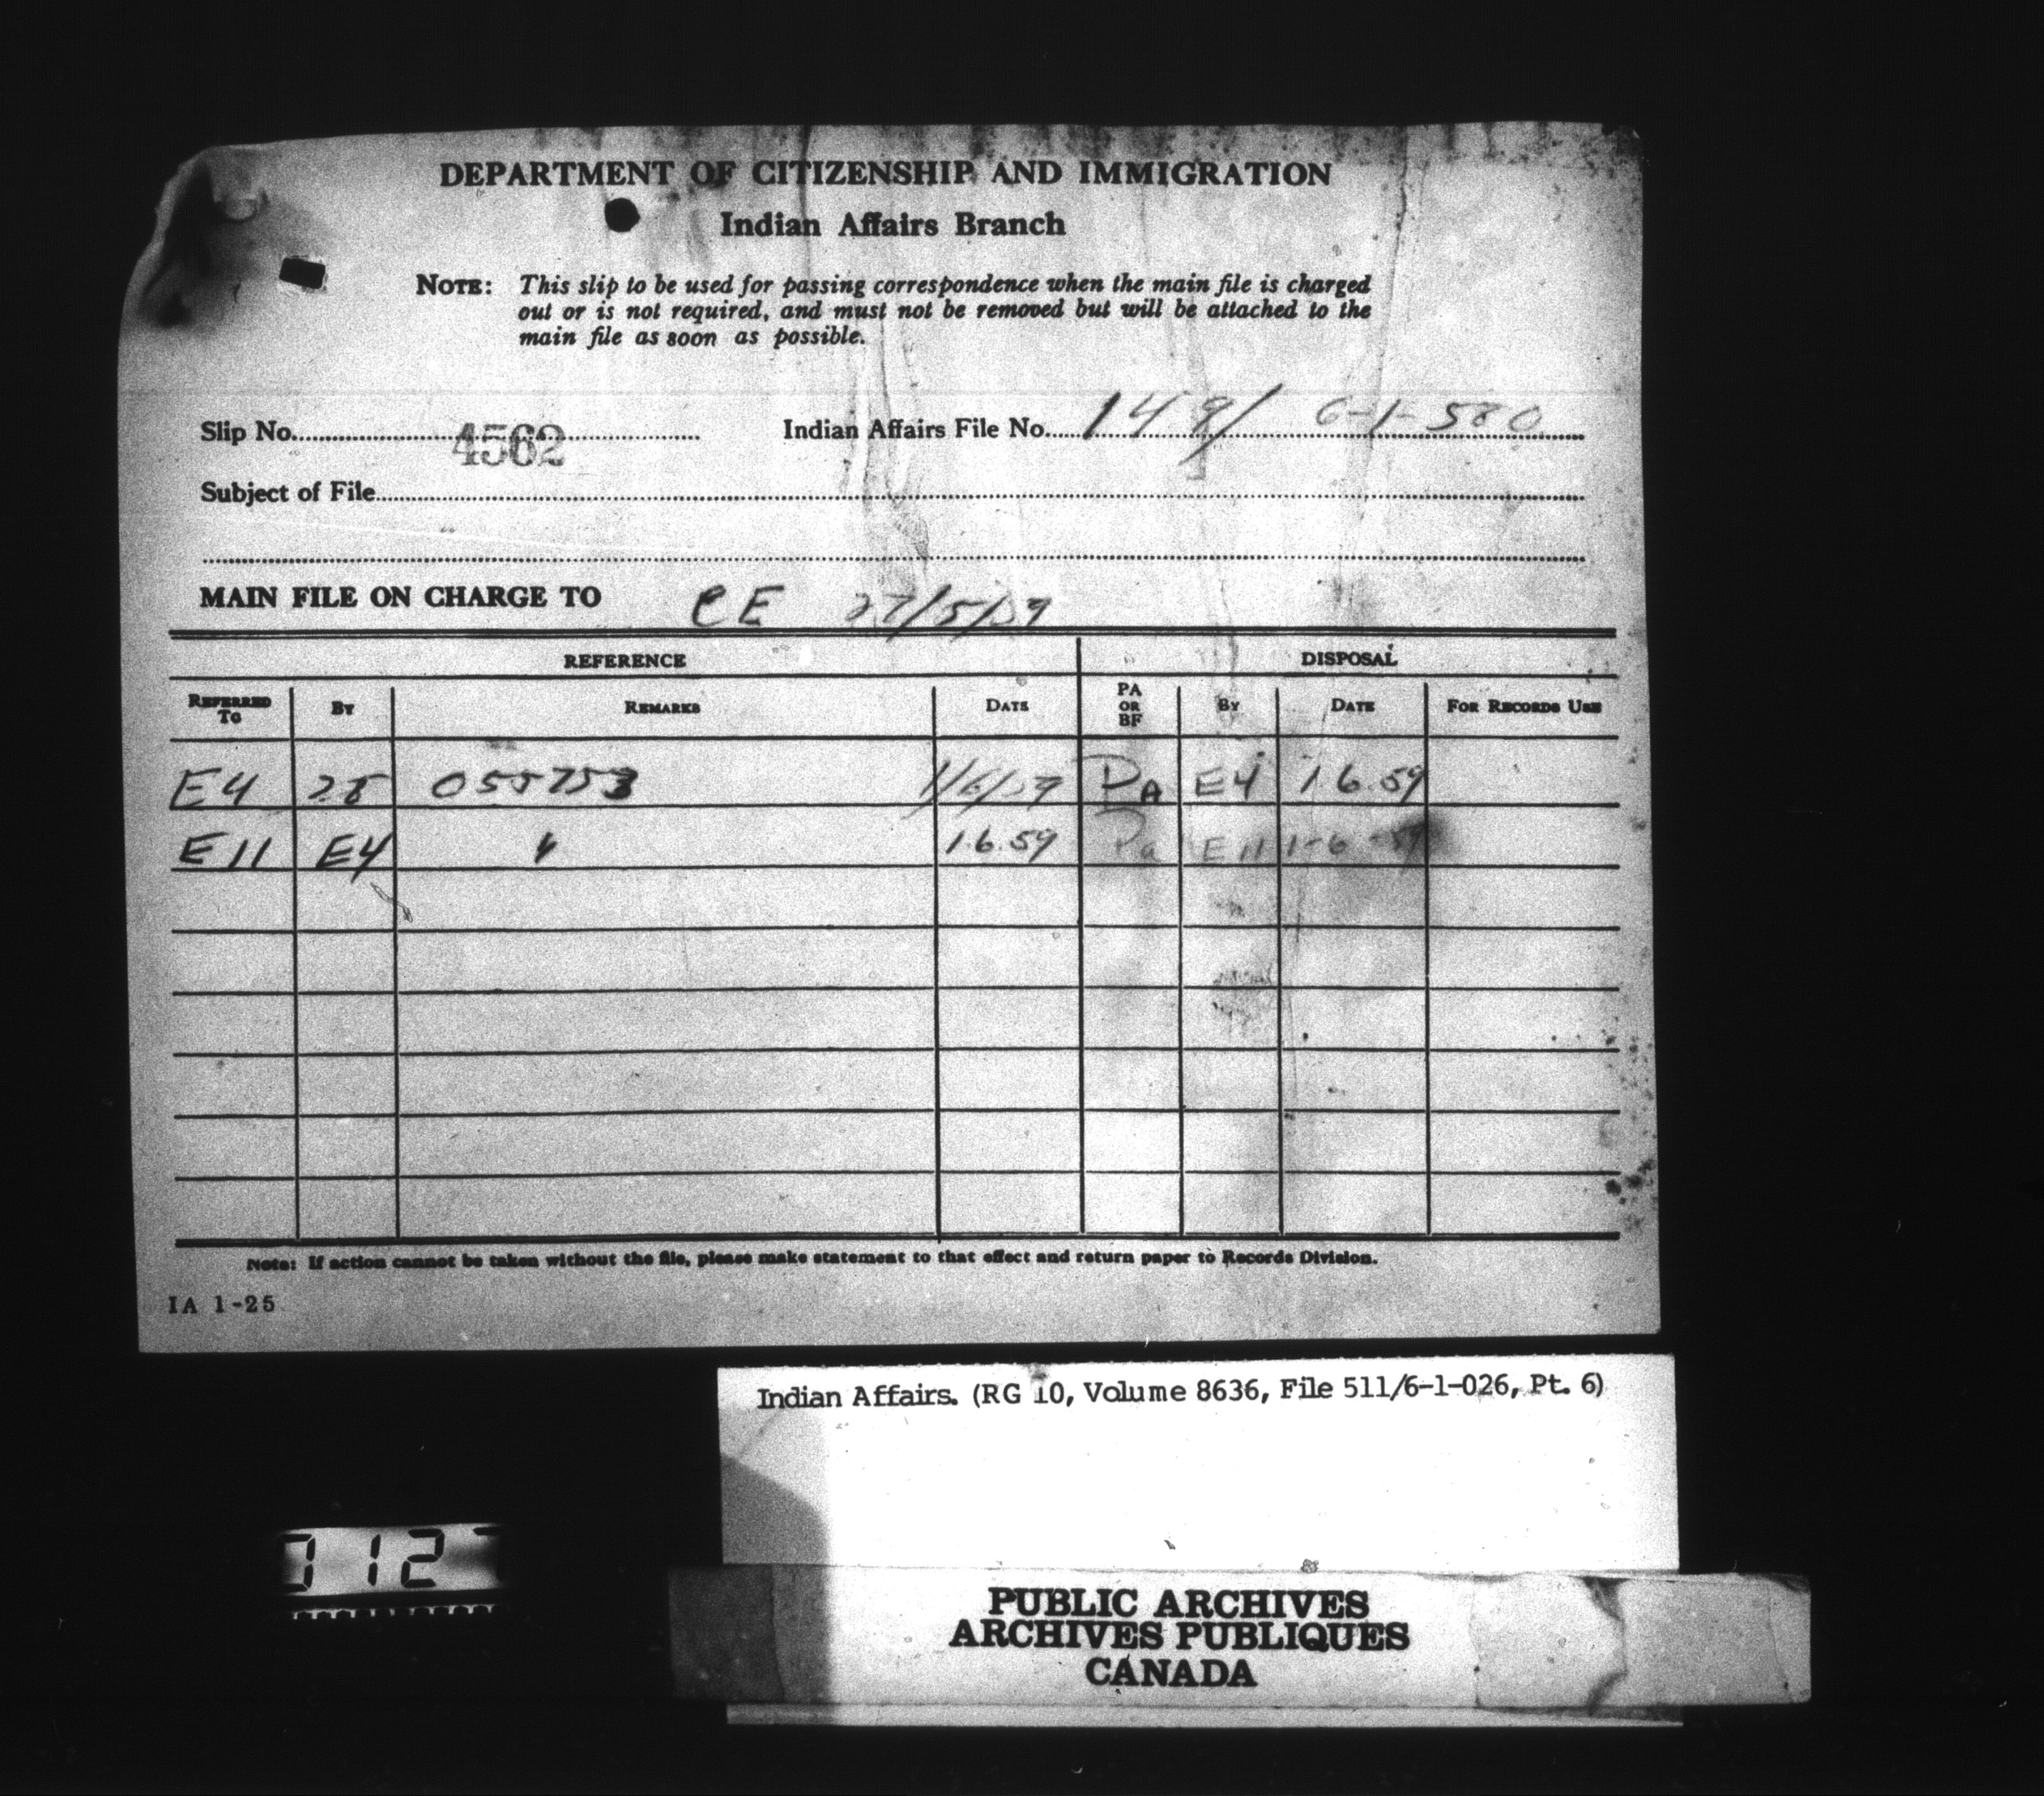 DEPARTMENT OF CITIZENSHIP AND IMMIGRATION
Indian Affairs Branch
NOTE: This slip to be used for passing correspondence when the main file is charged
out or is not required, and must not be removed but will be attached to the
main file as soon as possible.
Slip No. 4562 Indian Affairs File No. 149/ 6-1-580
Subject of File
MAIN FILE ON CHARGE TO CE 27/5/59
REFERENCE DISPOSAL
REFERRED TO BY REMARKS DATE PA OR BF BY DATE FOR RECORDS USE
E4 28 055753 1/6/59 PA E4 1.6.59
E11 E4 1.6.59 Pa E11 1-6-59
Note: If action cannot be taken without the file, please make statement to that effect and return paper to Records Division.
IA 1-25
Indian Affairs. (RG 10, Volume 8636, File 511/6-1-026, Pt. 6)
12
PUBLIC ARCHIVES
ARCHIVES PUBLIQUES
CANADA